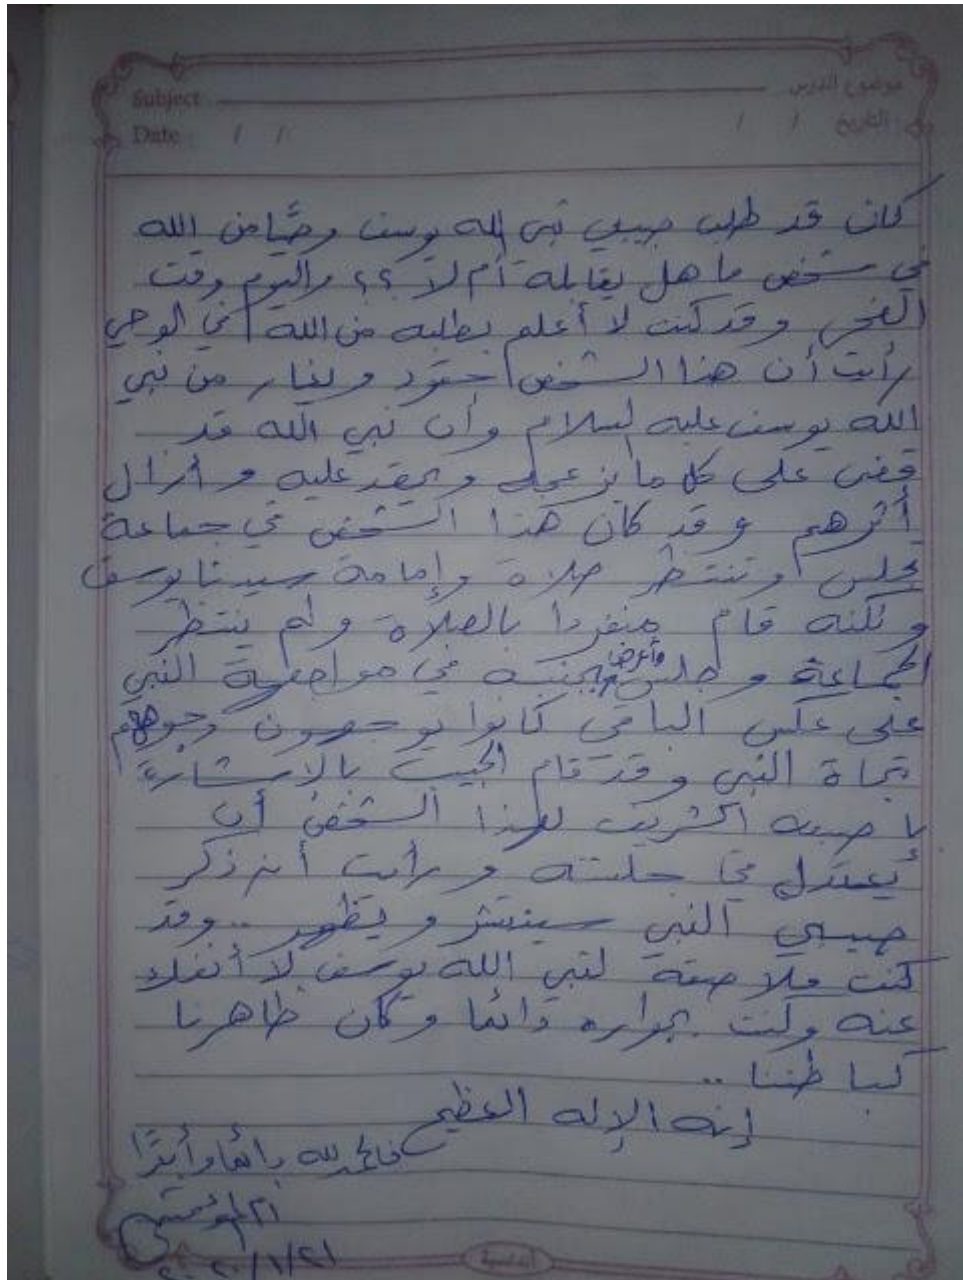 Subject موضوع الدرس
Date / / التاريخ / /
كان قد طلب حبيبي نبي الله يوسف وحيًا من الله
في شخص ما هل يقابله أم لا ؟؟ واليوم وقت
الفجر وقد كنت لا أعلم بطلبه من الله في الوحي
رأيت أن هذا الشخص حقود ويغار من نبي
الله يوسف عليه السلام وأن نبي الله قد
قضى على كل ما يزعجه ويحقد عليه وأزال
أثرهم وقد كان هذا الشخص في جماعة
تجلس وتنتظر صلاة وإمامة سيدنا يوسف
ولكنه قام منفردا بالصلاة ولم ينتظر
الجماعة وجلس وأعرض بجنبه في مواجهة النبي
على عكس الباقي كانوا يوجهون وجوههم
تجاة النبي وقد قام الحبيب بالإشارة
بإصبعه الشريف لهذا الشخص أن
يعتدل في جلسته ورأيت أن ذكر
حبيبي النبي سينتشر ويظهر .. وقد
كنت ملاصقة لنبي الله يوسف لا أنفك
عنه وكنت بجواره دائما وكان ظاهرنا
كباطننا ..
إنه الإله العظيم
فالحمد لله دائما وأبدًا
أم المؤمنين